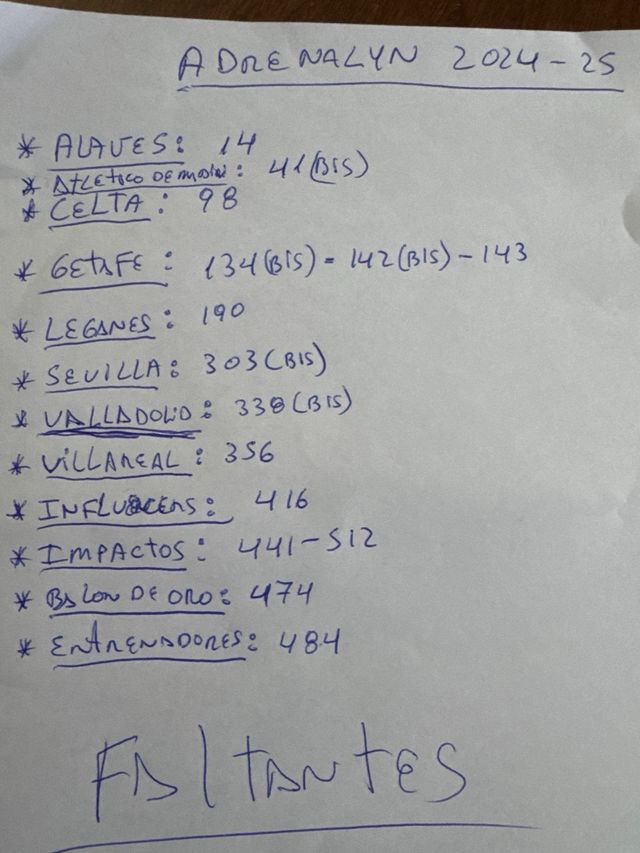 ADRENALYN 2024-25
* ALAVES: 14
* ATLETICO DE MADRID: 41(BIS)
* CELTA: 98
* GETAFE: 134(BIS) - 142(BIS) - 143
* LEGANES: 190
* SEVILLA: 303(BIS)
* VALLADOLID: 338(BIS)
* VILLAREAL: 356
* INFLUENCERS: 416
* IMPACTOS: 441-512
* BALON DE ORO: 474
* ENTRENADORES: 484
FALTANTES